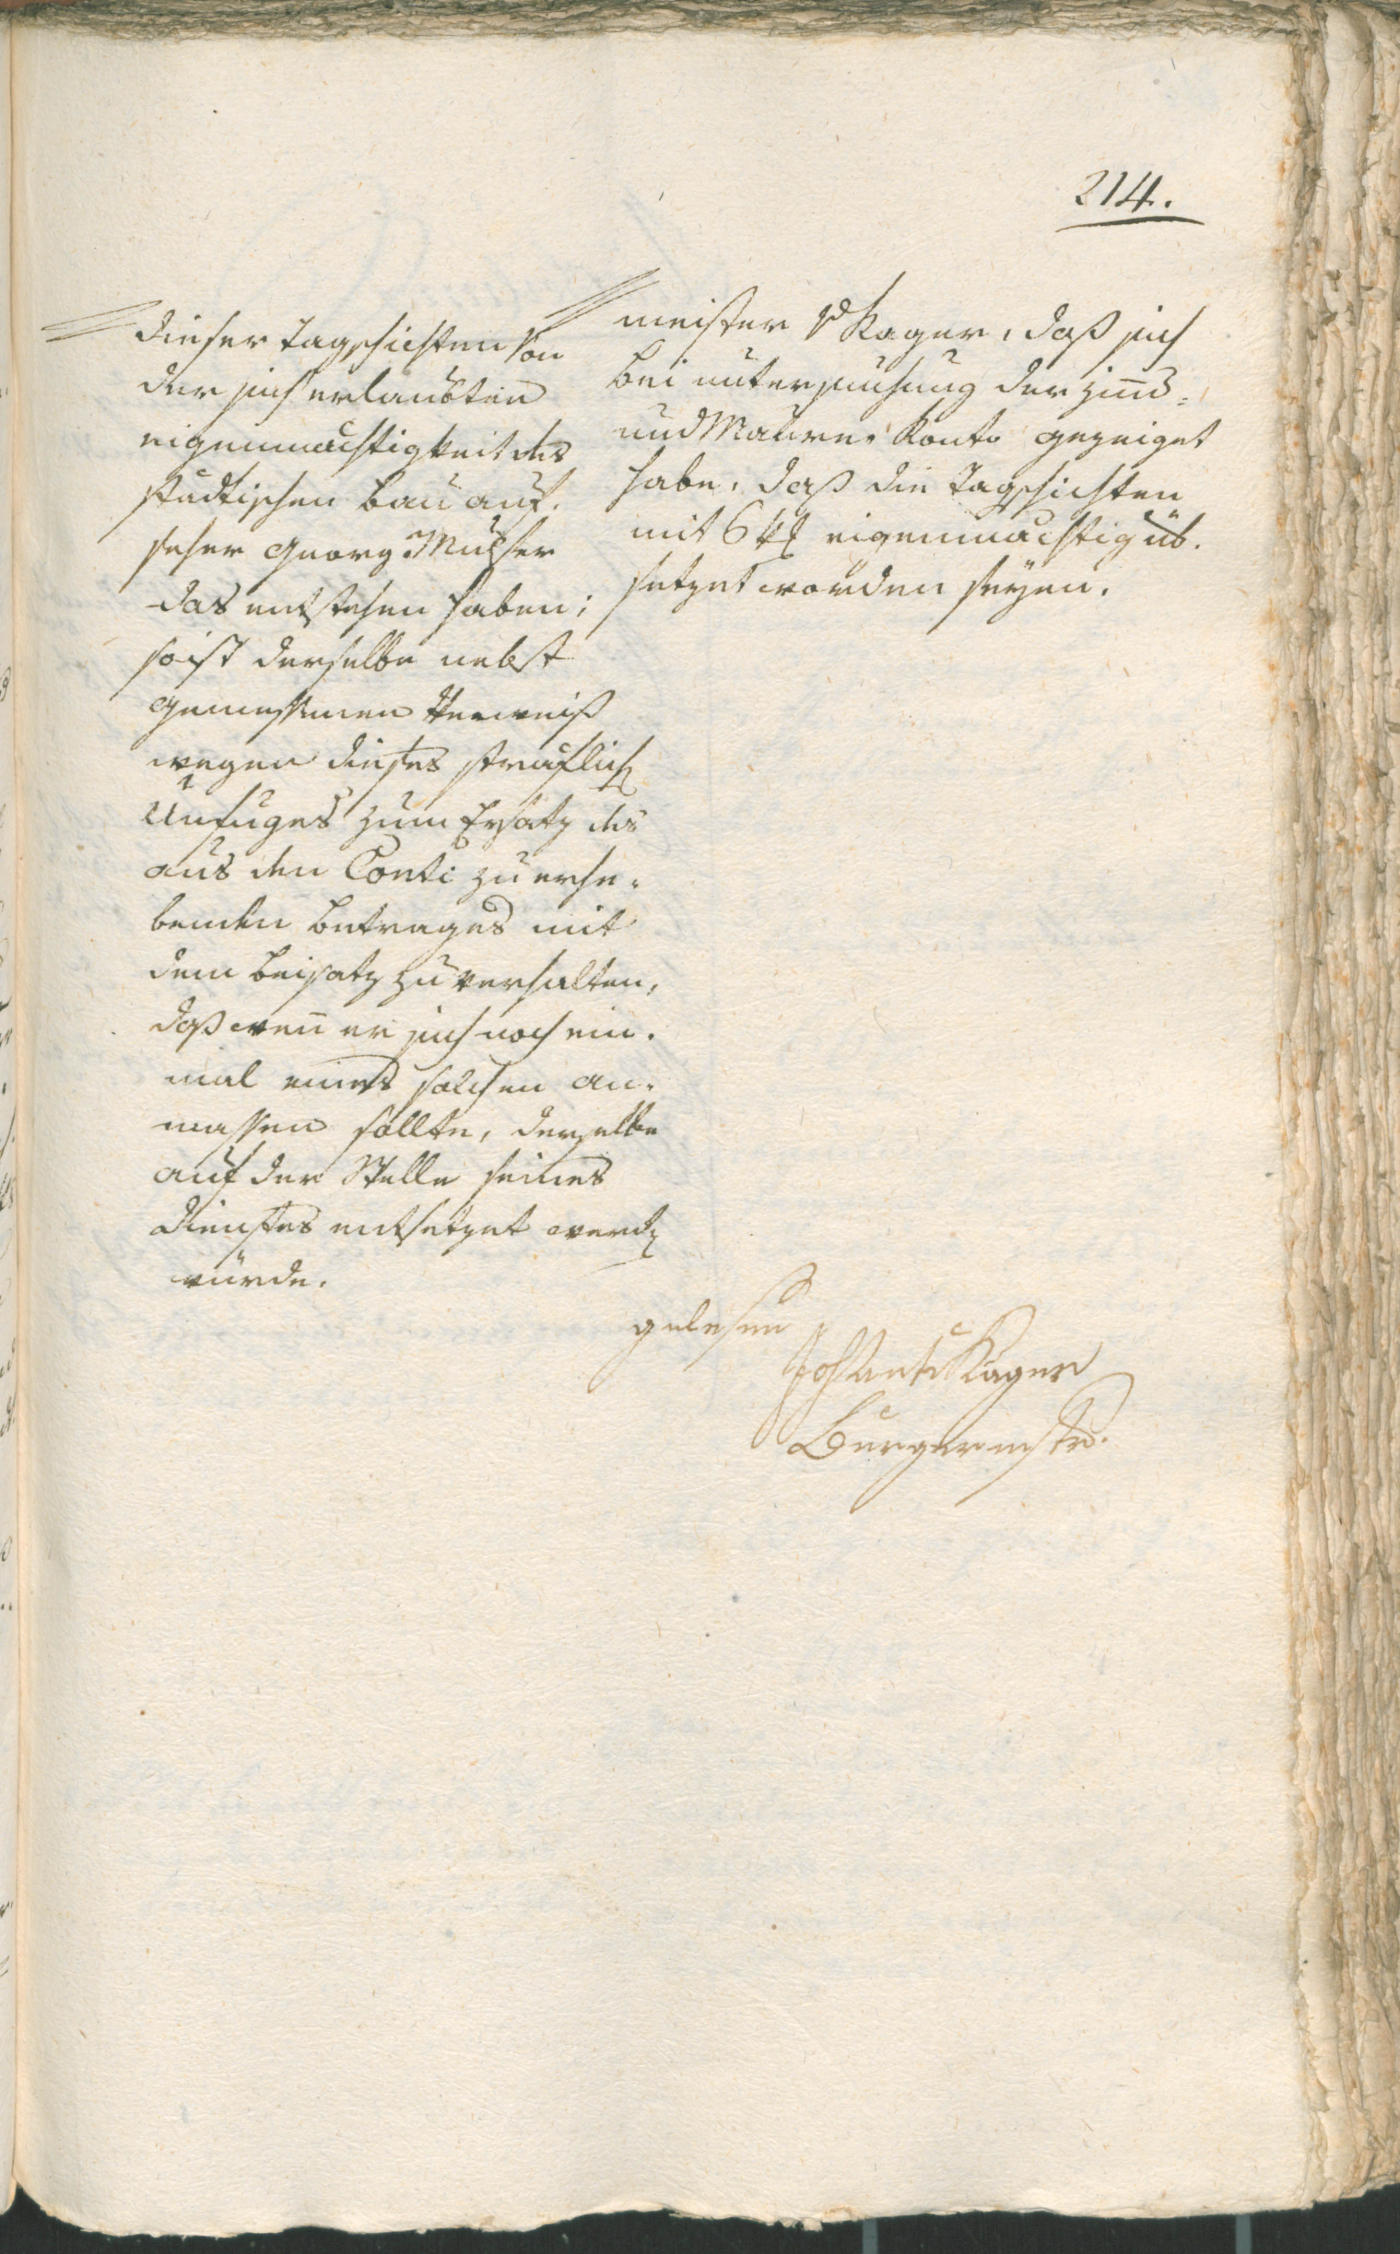 214.
dieser Tagschichten von
der sich erlaubten
eigenmächtigkeit des
städtischen Bau auf-
seher Georg Mülser
das entstehen haben;
so ist derselbe nebst
gemessenen Verweiß
wegen dieses sträflich
Unfuges zum Ersatz des
aus den Conti zu erhe-
benden Betrages mit
dem Beisatz zu verhalten,
daß wen̅ er sich noch ein-
mal eines solchen an-
massen sollte, derselbe
auf der Stelle seines
Dienstes entsetzet werd
würde.
meister v Kager, daß sich
bei untersuchung der Zim̅-
und Maurer Konto gezeiget
habe, daß die Tagschichten
mit 6 xr eigenmächtig üb-
setzet worden seyen.
gelesen
Joh Ant Kager
Burgermstr.